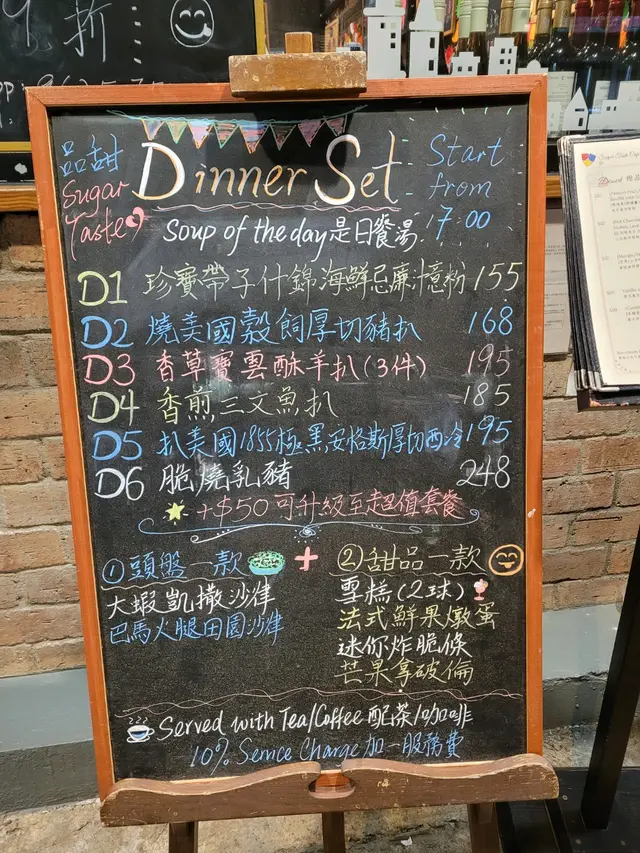 9折
品甜
Sugar
Taste
Dinner Set
Start
from
7:00
Soup of the day 是日餐湯
D1 珍寶帶子什錦海鮮忌廉汁意粉 155
D2 燒美國穀飼厚切豬扒 168
D3 香草寶雲酥羊扒(3件) 195
D4 香煎三文魚扒 185
D5 扒美國1855極黑安格斯厚切西冷 195
D6 脆燒乳豬 248
+$50可升級至超值套餐
① 頭盤一款 +
大蝦凱撒沙律
巴馬火腿田園沙律
② 甜品一款
雪糕(2球)
法式鮮果燉蛋
迷你炸脆條
芒果拿破倫
Served with Tea/Coffee 配茶/咖啡
10% Service Charge 加一服務費